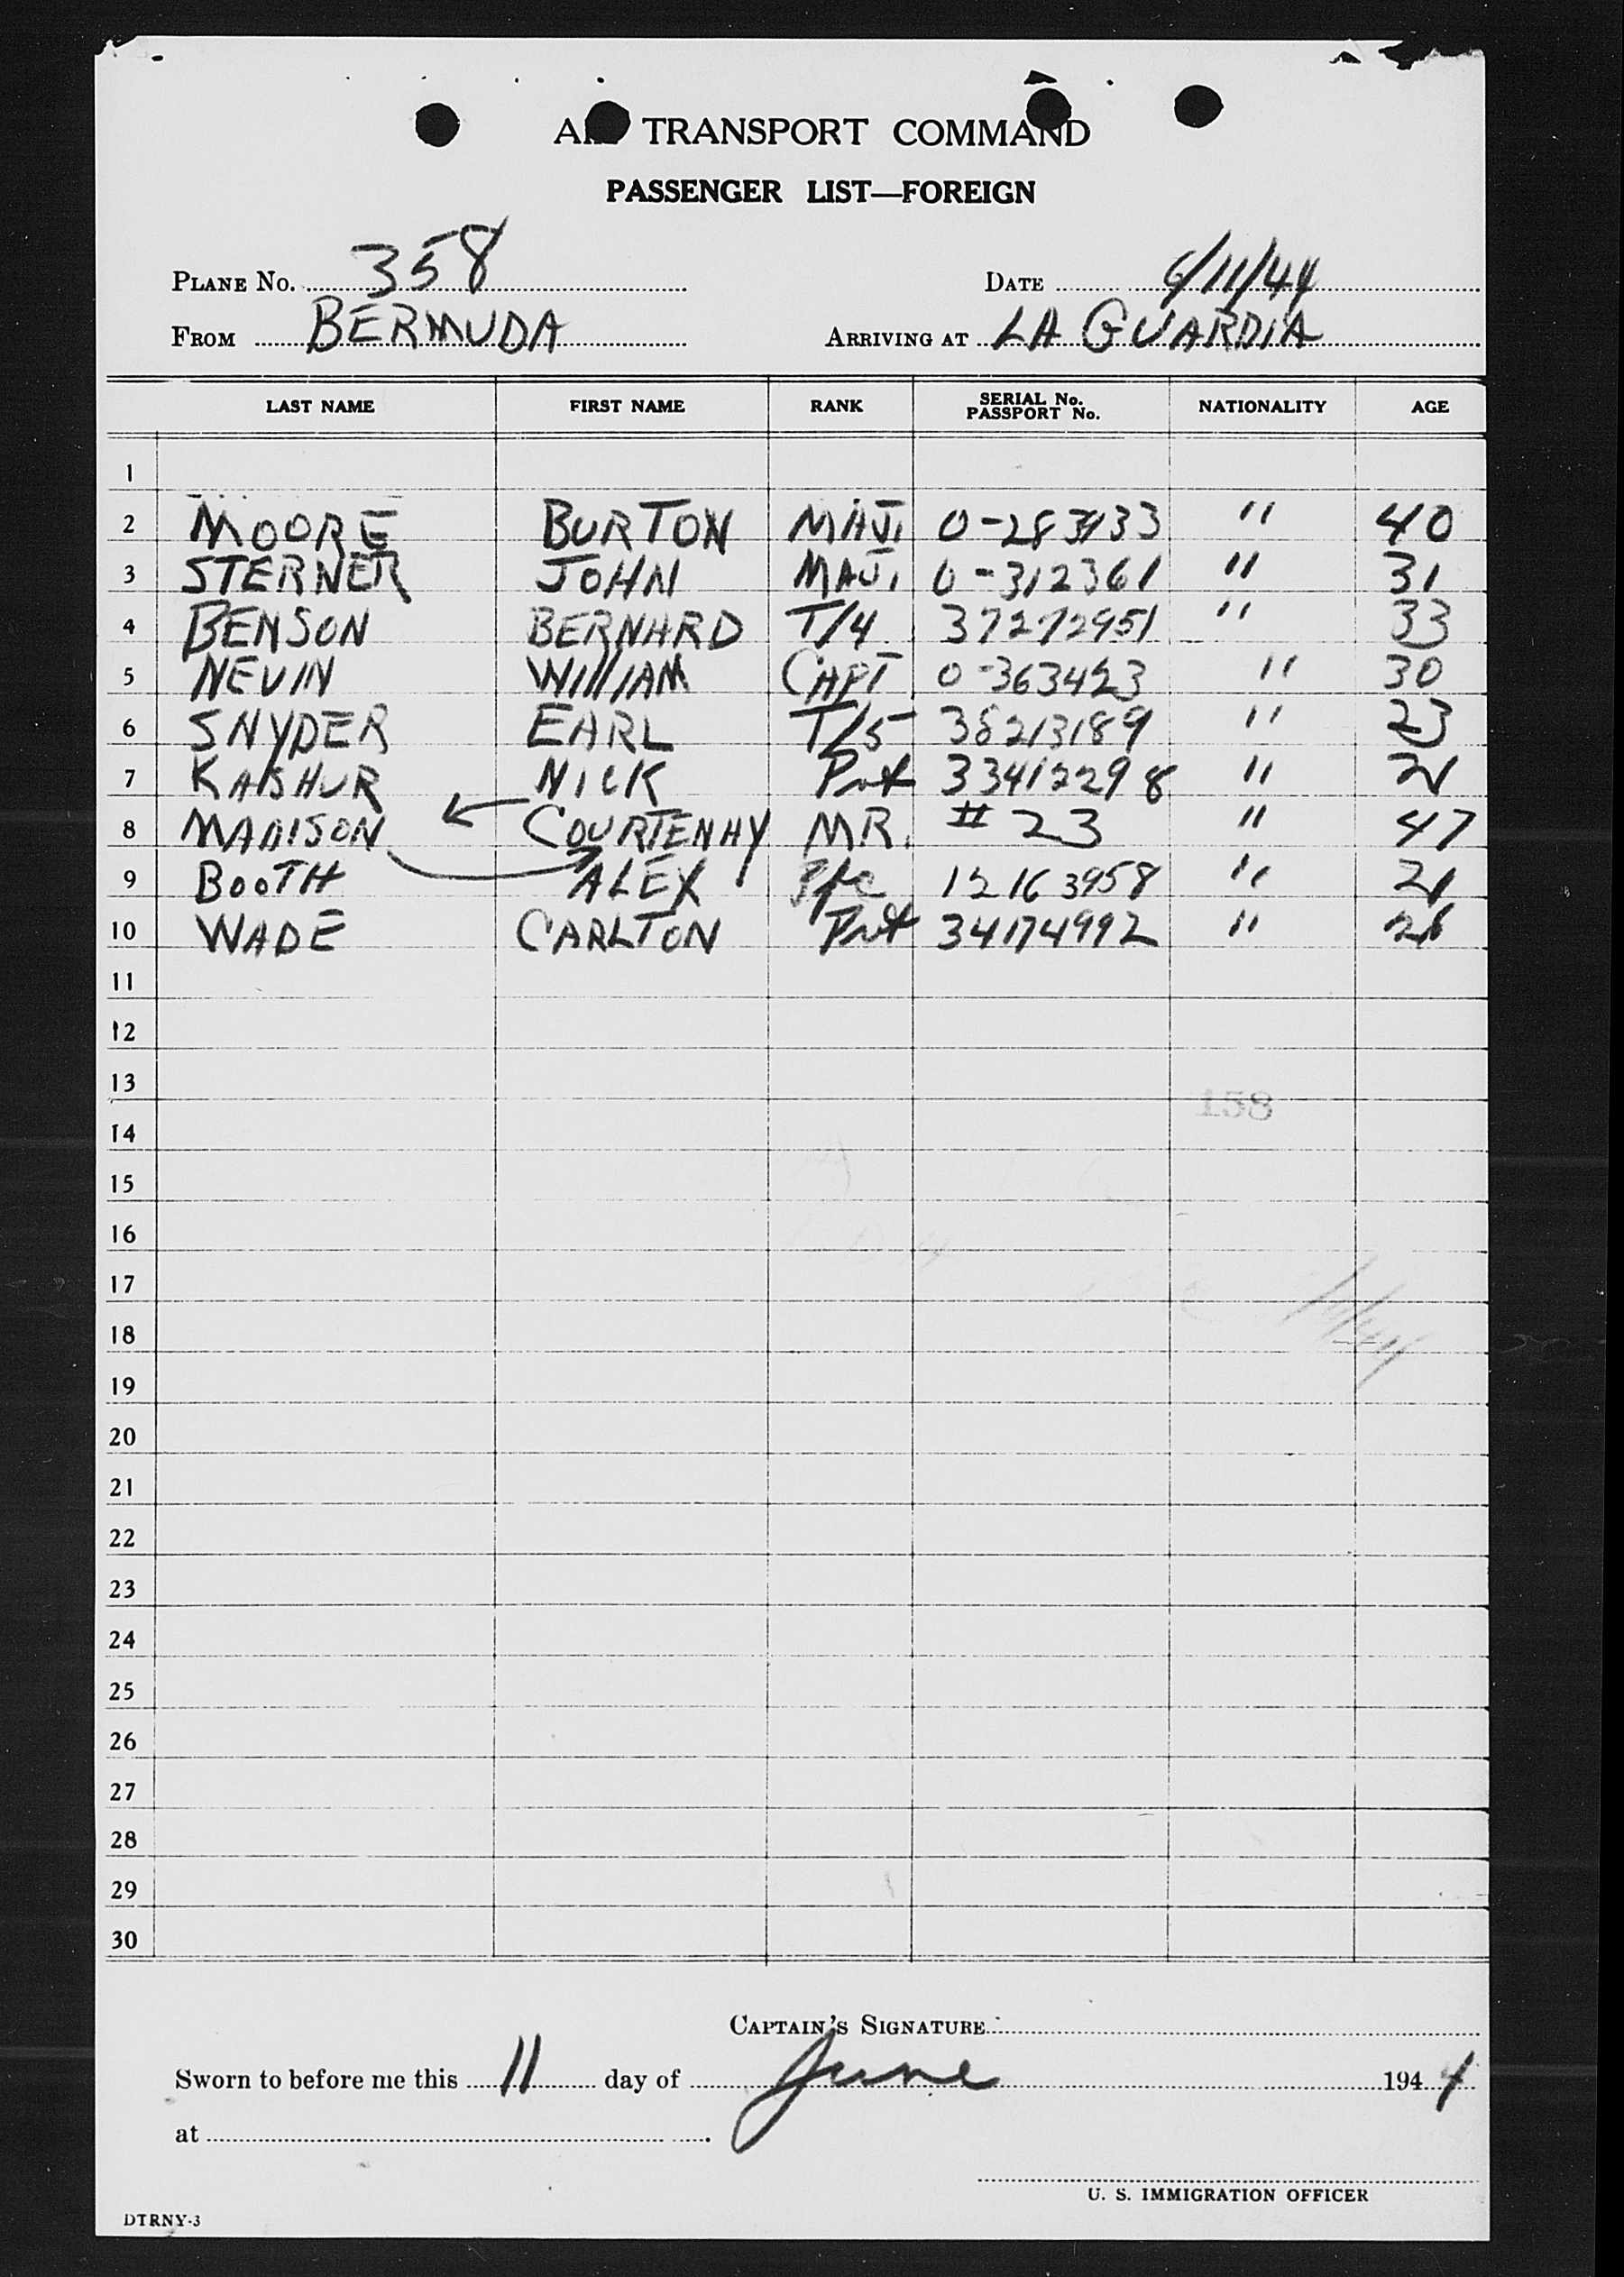 AIR TRANSPORT COMMAND
PASSENGER LIST—FOREIGN
PLANE NO. 358 DATE 6/11/44
FROM BERMUDA ARRIVING AT LA GUARDIA
LAST NAME FIRST NAME RANK SERIAL No. PASSPORT No. NATIONALITY AGE
1
2 MOORE BURTON MAJ. " 40
3 STERNER JOHN MAJ. 0-312361 " 31
4 BENSON BERNARD T/4 37272951 " 33
5 NEVIN WILLIAM CAPT 0-363423 " 30
6 SNYDER EARL T/5 38213189 " 23
7 NICK Pvt 33412298 " 21
8 MADISON COURTENAY MR. # 23 " 47
9 BOOTH ALEX Pfc 12163958 " 21
10 WADE CARLTON Pvt 34174992 "
11
12
13
158
14
15
16
17
18
19
20
21
22
23
24
25
26
27
28
29
30
CAPTAIN'S SIGNATURE
Sworn to before me this 11 day of June 1944
at
U. S. IMMIGRATION OFFICER
DTRNY-3